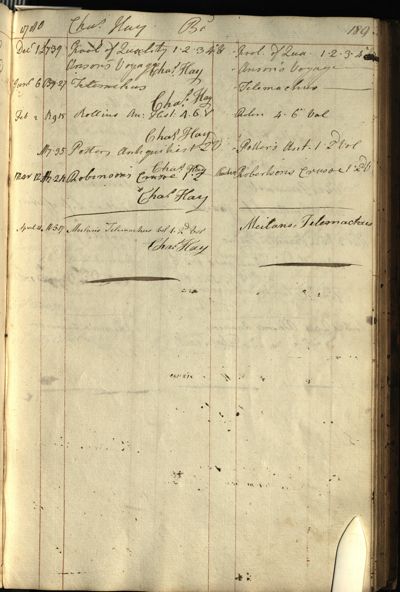 Chaˢ Hay 189
Decʳ 1 Fool of Quality 1·2·3·4·5 Fool of Qua. 1·2·3·4
Anson's Voyage Anson's Voyage
Chaˢ Hay
6 Telemachus Telemachus
Chaˢ Hay
Feb 2 Rollins An: Hist. 4·6 Rolin 4·6 Vol
Chaˢ Hay
Potters Antiquities 1 2 Potter's Ant. 1·2ᵈ Vol
Chaˢ Hay
Mar 12 Robinson's Crusoe 1·2 Robertsons Crusoe 1 2ᵈ
Chaˢ Hay
Telemachus Vol Meilans. Telemachus
Chaˢ Hay